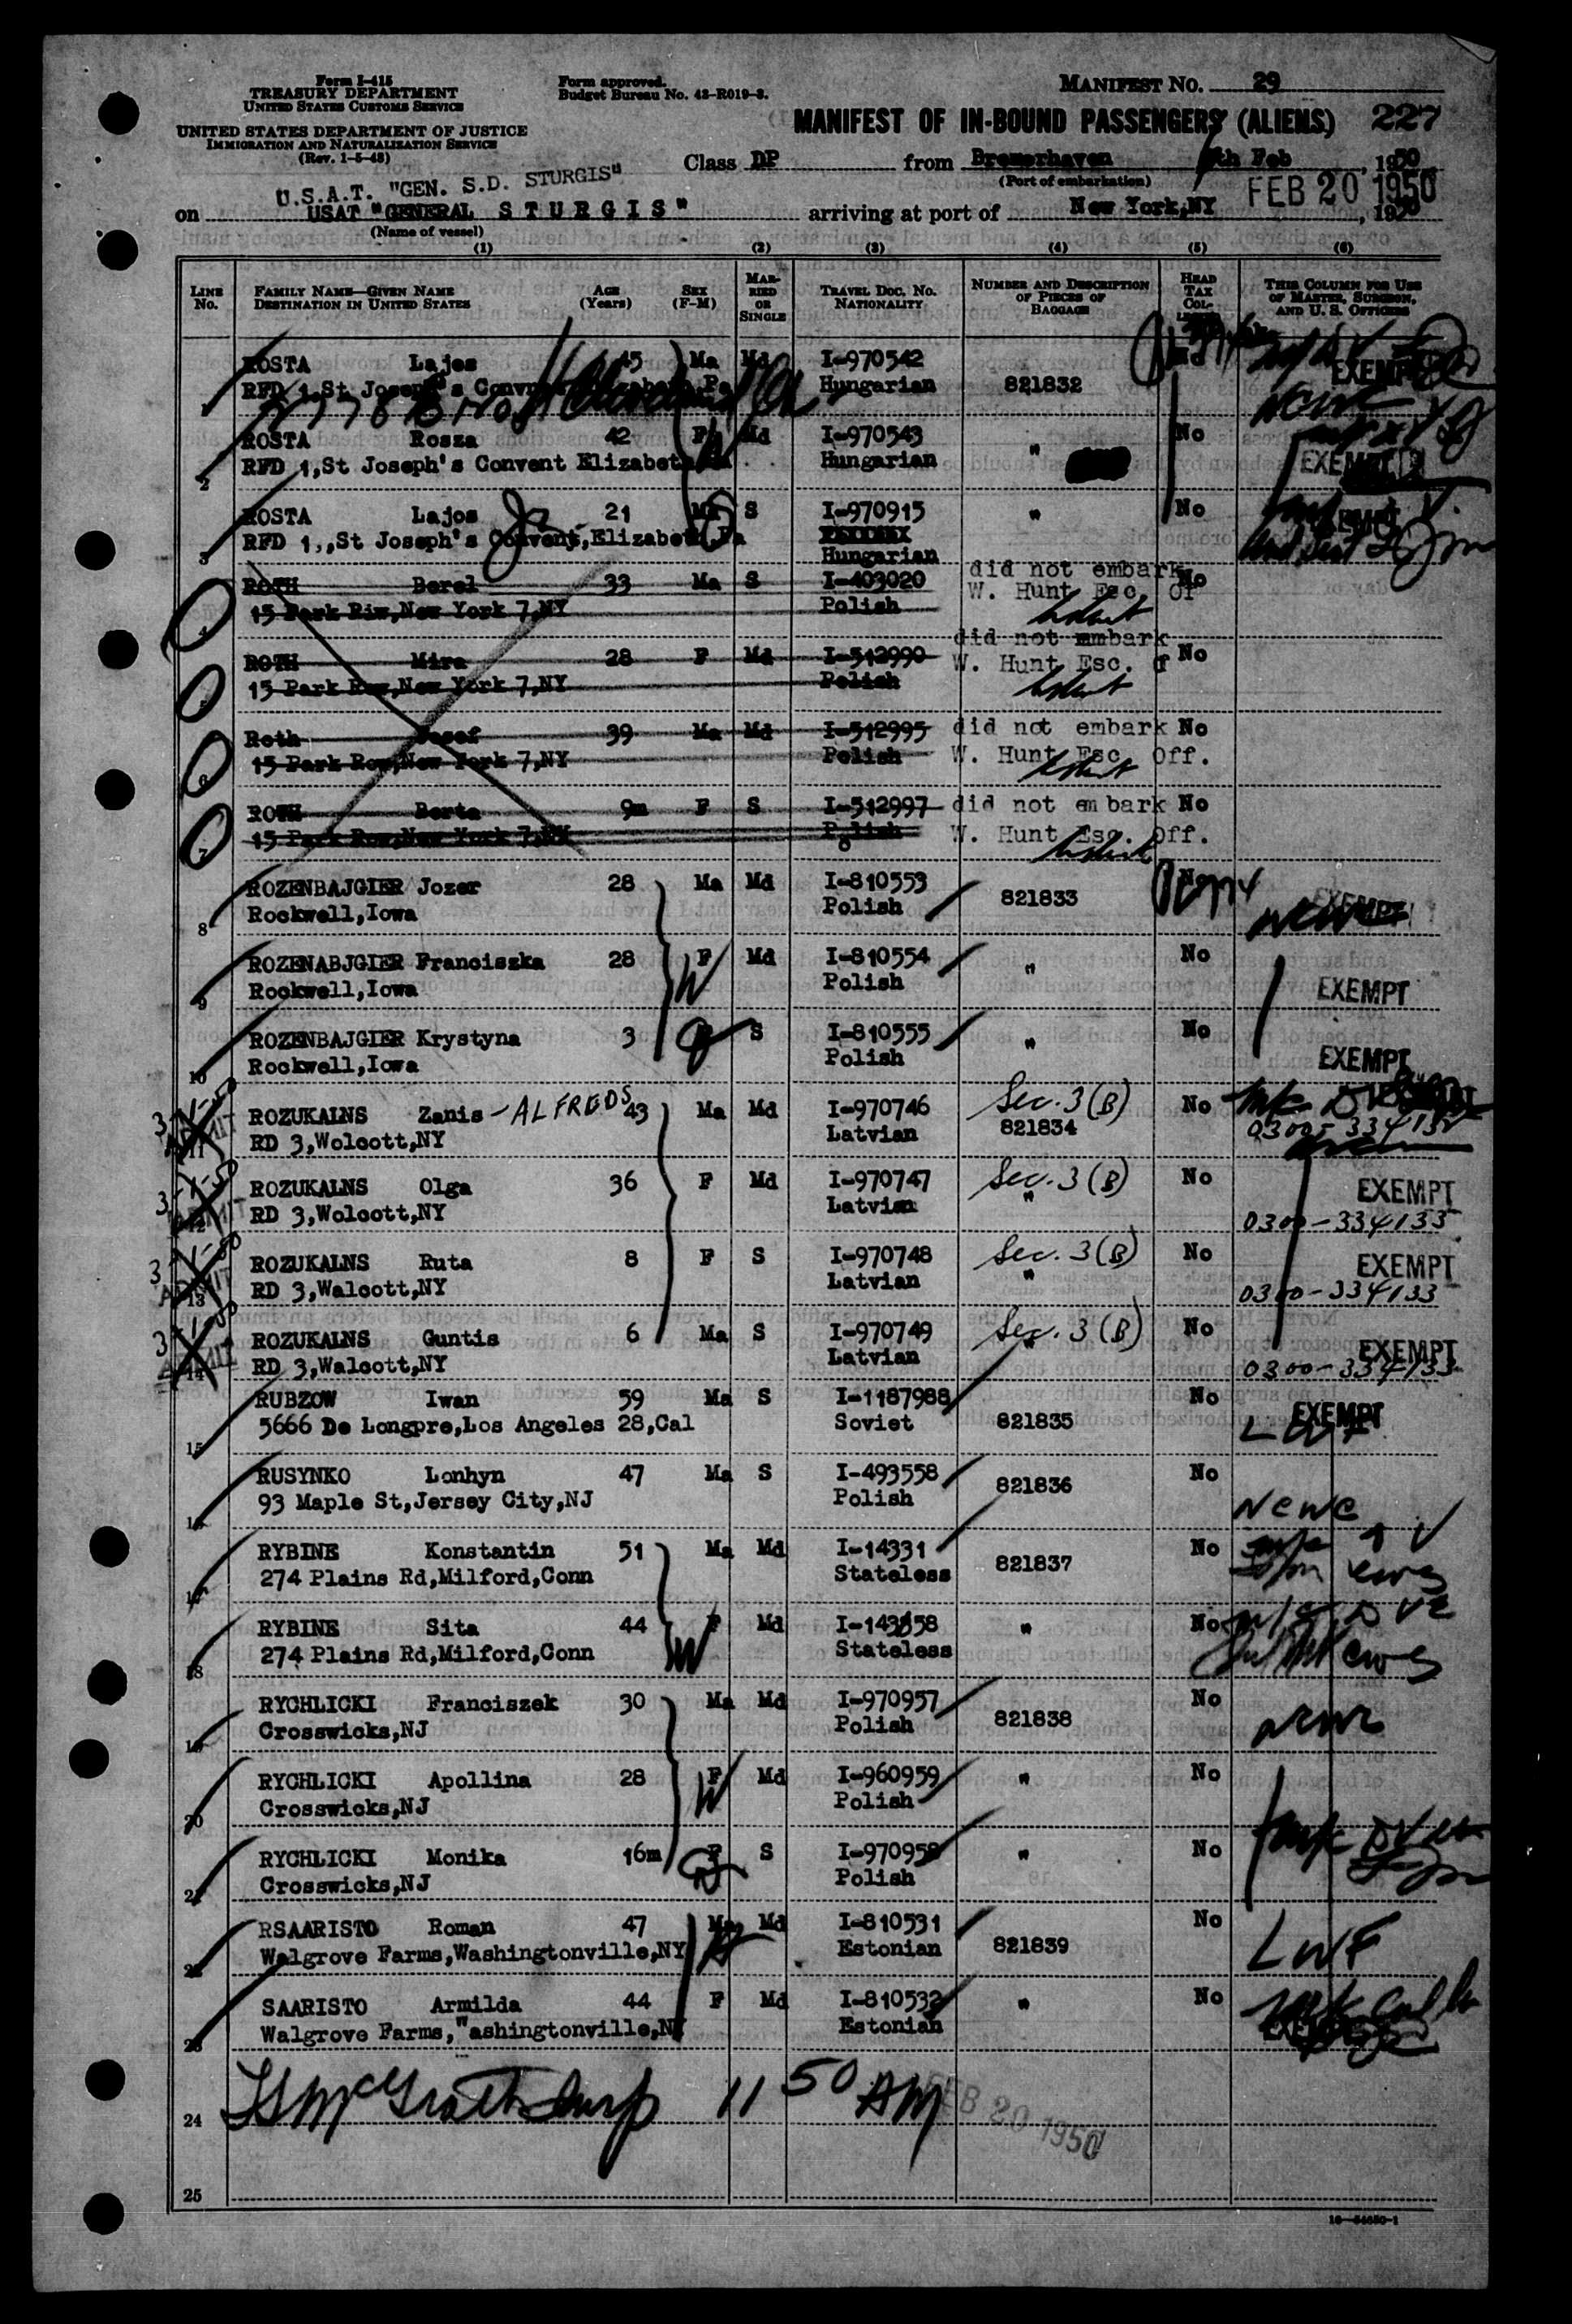 Form I-415
TREASURY DEPARTMENT
UNITED STATES CUSTOMS SERVICE
Form approved.
Budget Bureau No. 43-R019-3.
MANIFEST NO. 29
UNITED STATES DEPARTMENT OF JUSTICE
IMMIGRATION AND NATURALIZATION SERVICE
(Rev. 1-5-48)
MANIFEST OF IN-BOUND PASSENGERS (ALIENS) 227
Class DP from Bremerhaven th Feb, 1950
(Port of embarkation)
U.S.A.T. "GEN. S.D. STURGIS" FEB 20 1950
on USAT "GENERAL STURGIS" arriving at port of New York,NY, 1950
(Name of vessel)
(1) (2) (3) (4) (5) (6)
LINE No. FAMILY NAME—GIVEN NAME DESTINATION IN UNITED STATES AGE (Years) SEX (F-M) MARRIED OR SINGLE TRAVEL DOC. NO. NATIONALITY NUMBER AND DESCRIPTION OF PIECES OF BAGGAGE HEAD TAX COL- THIS COLUMN FOR USE OF MASTER, SURGEON, AND U. S. OFFICERS
1 ROSTA Lajos 45 Ma Md I-970542
RFD 1,St. Joseph's Convent Elizabeth,Pa Hungarian 821832 EXEMPT
Cleveland
2 ROSTA Rosza 42 F Md I-970543 No
RFD 1,St Joseph's Convent Elizabeth Hungarian " EXEMPT
3 ROSTA Lajos 21 Ma S I-970915 " No
RFD 1,,St Joseph's Convent,Elizabeth,Pa
Hungarian
4 ROTH Berel 33 Ma S I-403020 did not embark No
15 Park Rim,New York 7,NY Polish W. Hunt Esc. Of
5 ROTH Mira 28 F Md I-512990 did not embark No
15 Park Row,New York 7,NY Polish W. Hunt Esc. Of
6 Roth Josef 39 Ma Md I-512995 did not embark No
15 Park Row,New York 7,NY Polish W. Hunt Esc. Off.
7 ROTH Berta 9m F S I-512997 did not embark No
15 Park Row,New York 7,NY Polish W. Hunt Esc. Off.
8 ROZENBAJGIER Jozer 28 Ma Md I-810553
Rockwell,Iowa Polish 821833 NCWC EXEMPT
9 ROZENABJGIER Franciszka 28 F Md I-810554 No
Rockwell,Iowa Polish " EXEMPT
10 ROZENBAJGIER Krystyna 3 F S I-810555 No
Rockwell,Iowa Polish " EXEMPT
11 ROZUKALNS Zanis - ALFREDS 43 Ma Md I-970746 Sec. 3(B) No
RD 3,Wolcott,NY Latvian 821834
12 ROZUKALNS Olga 36 F Md I-970747 Sec. 3(B) No EXEMPT
RD 3,Wolcott,NY Latvian " 0300-334133
13 ROZUKALNS Ruta 8 F S I-970748 Sec. 3(B) No EXEMPT
RD 3,Walcott,NY Latvian " 0300-334133
14 ROZUKALNS Guntis 6 Ma S I-970749 Sec. 3(B) No EXEMPT
RD 3,Walcott,NY Latvian " 0300-334133
15 RUBZOW Iwan 59 Ma S I-1187988 No EXEMPT
5666 De Longpre,Los Angeles 28,Cal Soviet 821835 LWF
16 RUSYNKO Lonhyn 47 Ma S I-493558 No
93 Maple St,Jersey City,NJ Polish 821836 NCWC
17 RYBINE Konstantin 51 Ma Md I-14331 No
274 Plains Rd,Milford,Conn Stateless 821837
18 RYBINE Sita 44 F Md I-143358 " No
274 Plains Rd,Milford,Conn Stateless
19 RYCHLICKI Franciszek 30 Ma Md I-970957 No
Crosswicks,NJ Polish 821838 NCWC
20 RYCHLICKI Apollina 28 F Md I-960959 " No
Crosswicks,NJ Polish
21 RYCHLICKI Monika 16m F S I-970958 " No
Crosswicks,NJ Polish
22 RSAARISTO Roman 47 Ma Md I-810531 No
Walgrove Farms,Washingtonville,NY Estonian 821839 LWF
23 SAARISTO Armilda 44 F Md I-810532 " No
Walgrove Farms,"ashingtonville,NY Estonian
24 McGrath Insp 11 50 AM FEB 20 1950
25
16—54650-1